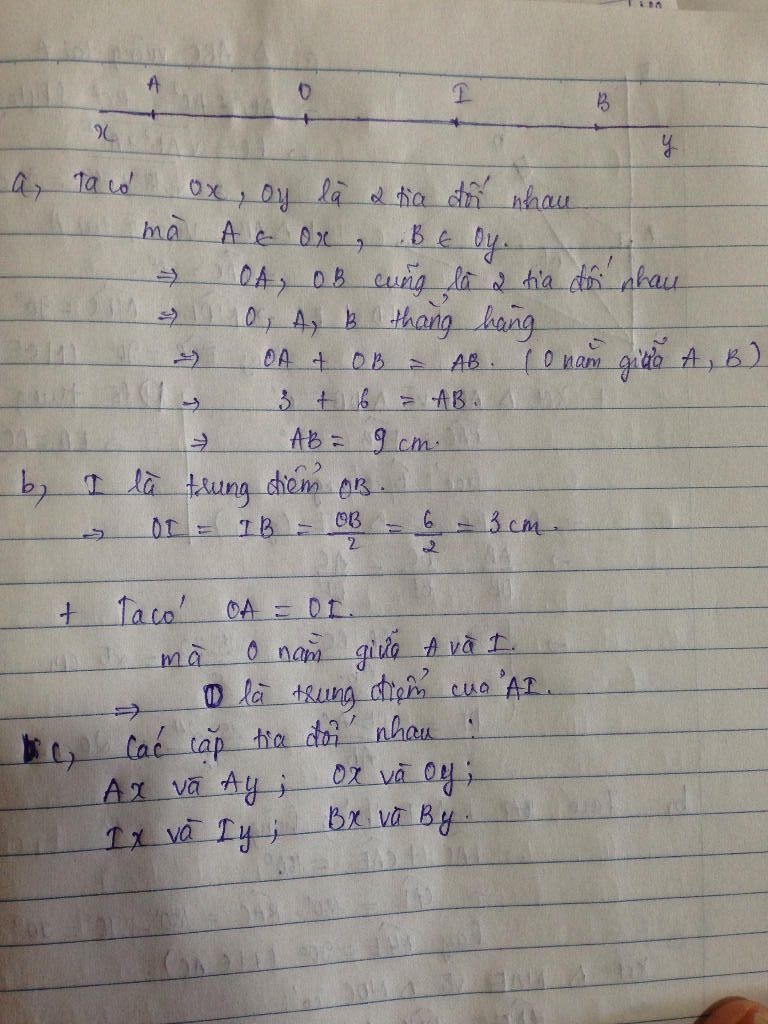 A O I B
x y
a, Ta có Ox, Oy là 2 tia đối nhau
mà A ∈ Ox, B ∈ Oy.
⇒ OA, OB cũng là 2 tia đối nhau
⇒ O, A, B thẳng hàng
⇒ OA + OB = AB. (O nằm giữa A, B)
⇒ 3 + 6 = AB.
⇒ AB = 9 cm.
b, I là trung điểm OB.
⇒ OI = IB = OB/2 = 6/2 = 3 cm.
+ Ta có OA = OI.
mà O nằm giữa A và I.
⇒ O là trung điểm của AI.
c, Các cặp tia đối nhau :
Ax và Ay ; Ox và Oy ;
Ix và Iy ; Bx và By.